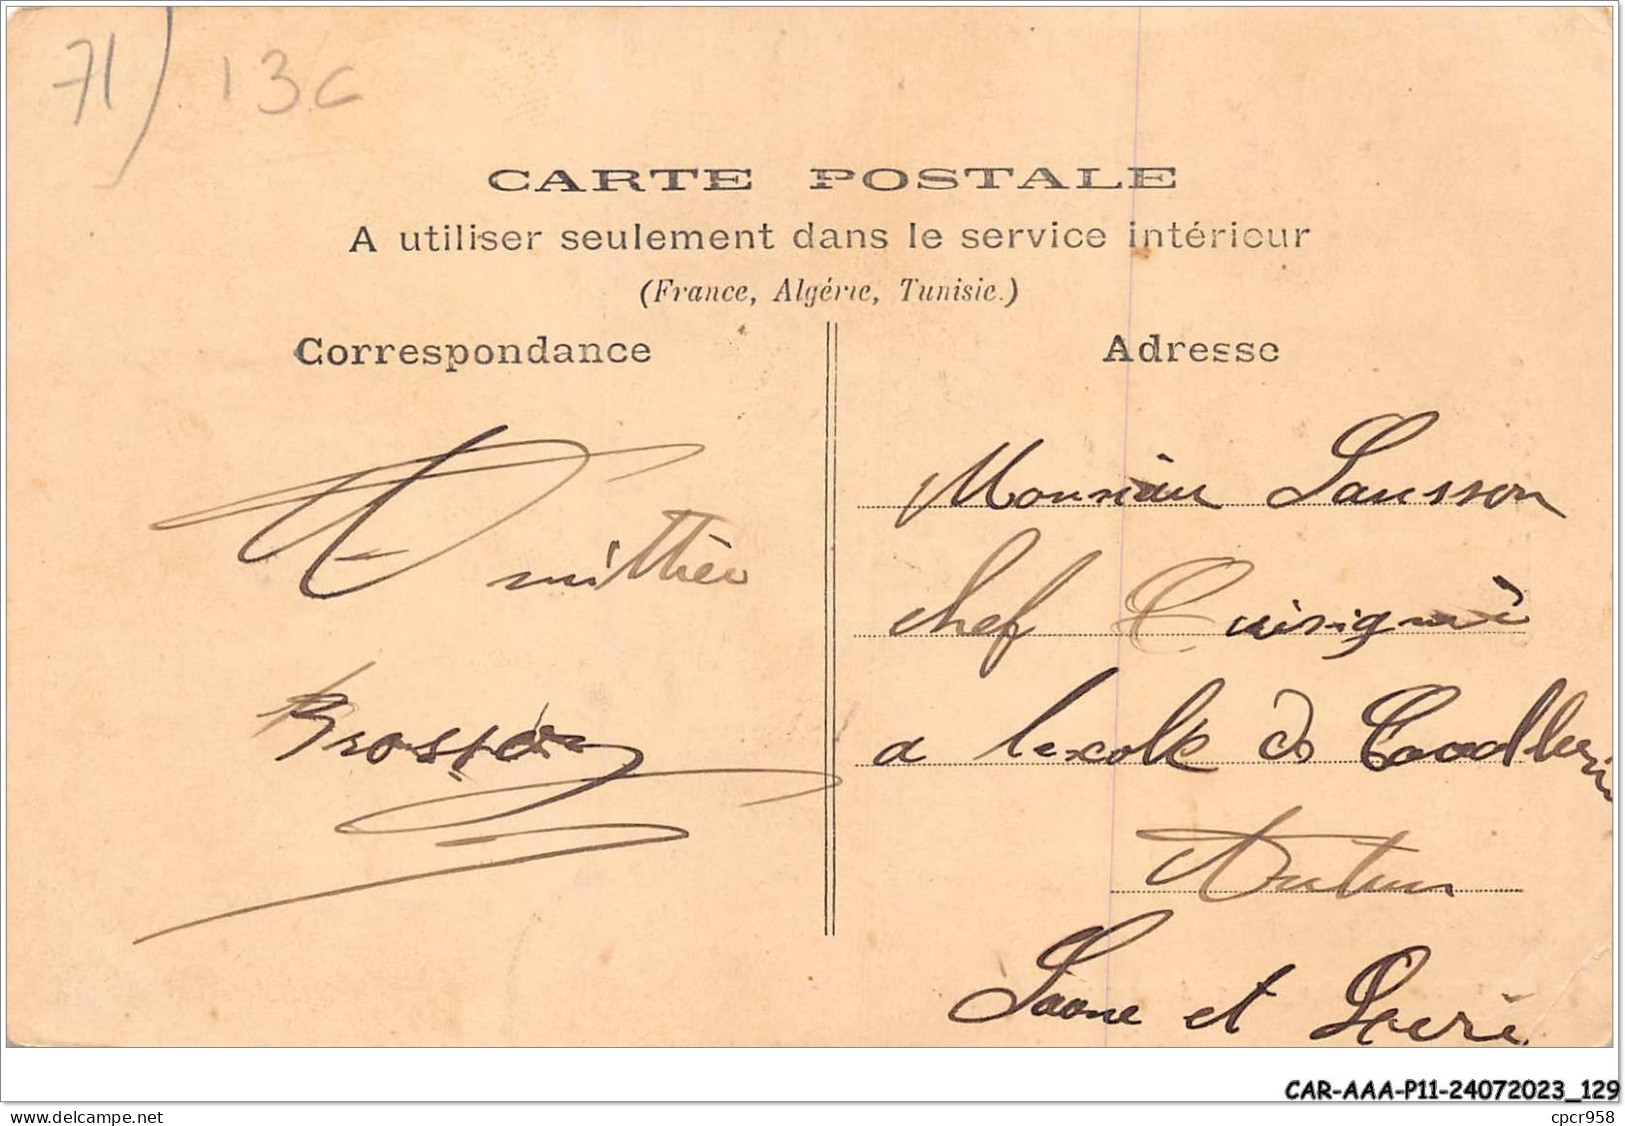 71) 13c
CARTE POSTALE
A utiliser seulement dans le service intérieur
(France, Algérie, Tunisie.)
Correspondance
Adresse
Monsieur Sausson
chef Cuisignié
a lexcole de
Autun
Saone et Loire
CAR-AAA-P11-24072023_129
www.delcampe.net
cpcr958